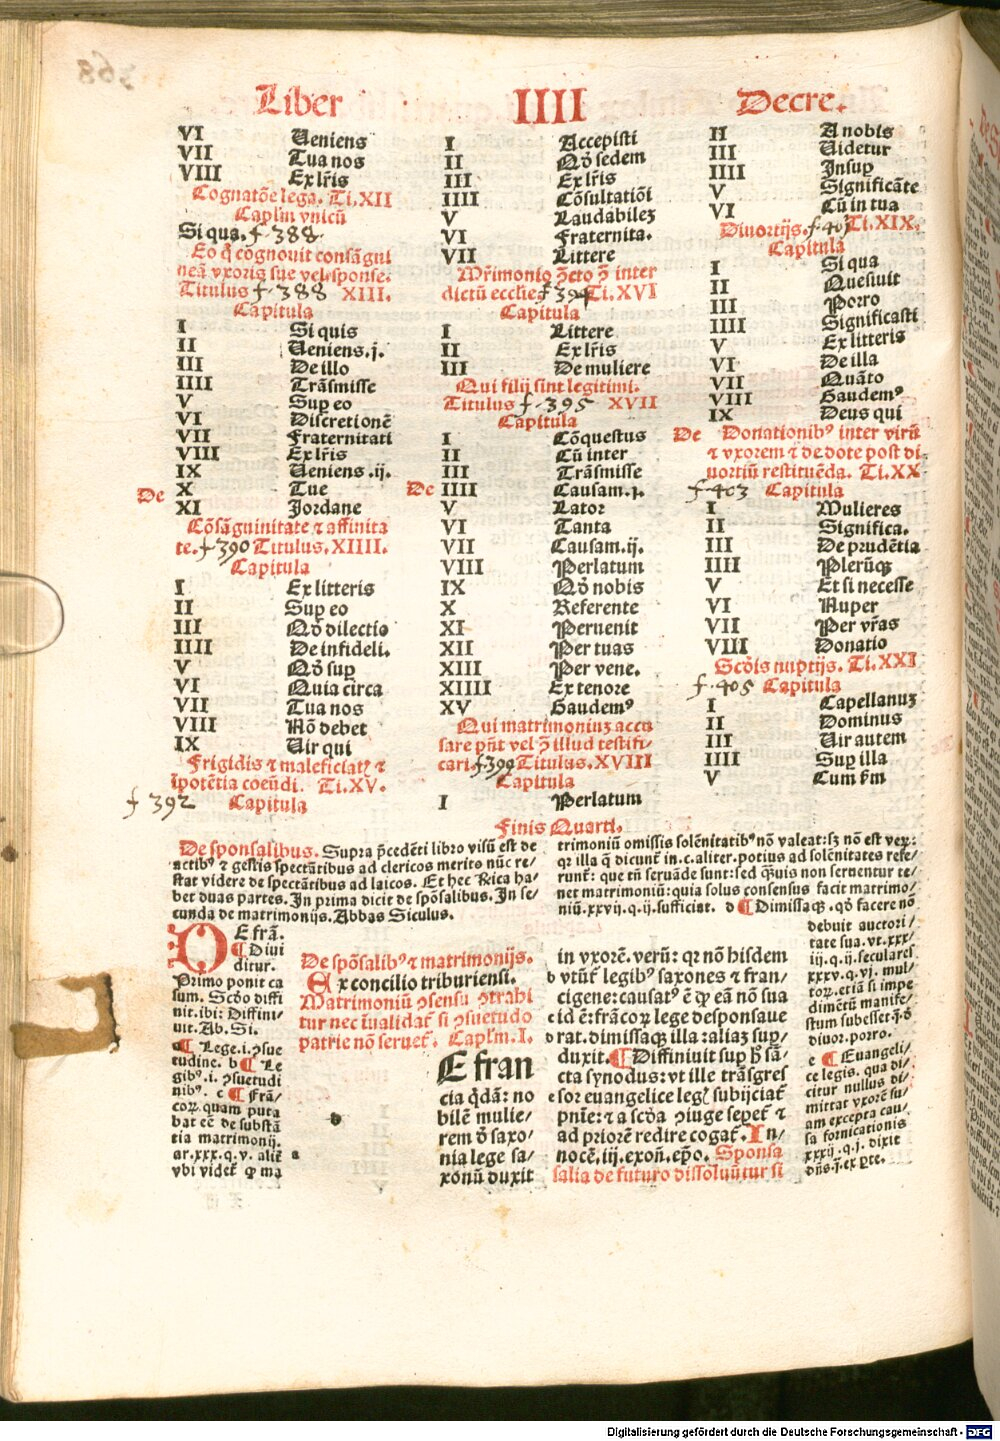 368
Liber IIII Decre.
VI Ueniens
VII Tua nos
VIII Ex lr̄is
Cognatōe lega. Ti.XII
Caplm vnicū
Si qua. f. 388
Eo q̄ cognouit consāgui
neā vxoris sue vel sponse.
Titulus f. 388 XIII.
Capitula
I Si quis
II Ueniens.j.
III De illo
IIII Trāsmisse
V Sup eo
VI Discretionē
VII Fraternitati
VIII Ex lr̄is
IX Ueniens.ij.
De X Tue
XI Jordane
Cōsāguinitate ⁊ affinita
te. f. 390 Titulus.XIIII.
Capitula
I Ex litteris
II Sup eo
III Qō dilectio
IIII De infideli.
V Qō sup
VI Quia circa
VII Tua nos
VIII Nō debet
IX Uir qui
Frigidis ⁊ maleficiat᷑ ⁊
īpotētia coeūdi. Ti.XV.
f 392 Capitula
I Accepisti
II Qō sedem
III Ex lr̄is
IIII Cōsultatiōi
V Laudabilez
VI Fraternita.
VII Littere
Mr̄imonio ꝯcto ꝯ inter
dictū ecclie f 394 Ti.XVI
Capitula
I Littere
II Ex lr̄is
III De muliere
Qui filij sint legitimi.
Titulus f. 395 XVII
Capitula
I Cōquestus
II Cū inter
III Trāsmisse
De IIII Causam.j.
V Lator
VI Tanta
VII Causam.ij.
VIII Perlatum
IX Qō nobis
X Referente
XI Peruenit
XII Per tuas
XIII Per vene.
XIIII Ex tenore
XV Gaudemꝰ
Qui matrimoniuz accu
sare pn̄t vel ꝯ illud testifi-
cari f 399 Titulus.XVIII
Capitula
I Perlatum
II A nobis
III Uidetur
IIII Insup
V Significāte
VI Cū in tua
Diuortijs. f. 401 Ti.XIX.
Capitula
I Si qua
II Quesiuit
III Porro
IIII Significasti
V Ex litteris
VI De illa
VII Quāto
VIII Gaudemꝰ
IX Deus qui
De Donationibꝰ inter virū
⁊ vxorem ⁊ de dote post di-
uortiū restituēda. Ti.XX
f. 403 Capitula
I Mulieres
II Significa.
III De prudētia
IIII Plerūqꝫ
V Et si necesse
VI Nuper
VII Per vr̄as
VIII Donatio
Scōis nuptijs. Ti.XXI
f. 405 Capitula
I Capellanuz
II Dominus
III Uir autem
IIII Sup illa
V Cum s̄m
Finis Quarti.
De sponsalibus. Supra p̄cedēti libro visū est de
actibꝰ ⁊ gestis spectātibus ad clericos merito nūc re/
stat videre de spectātibus ad laicos. Et hec Rica ha/
bet duas partes. In prima dicit de sponsalibus. In se/
cunda de matrimonijs. Abbas Siculus.
trimoniū omissis solēnitatibꝰ nō valeat: sꝫ nō est vex:
qr illa q̄ dicunt᷑ in.c.aliter.potius ad solēnitates refe/
runt᷑: que tn̄ seruāde sunt: sed q̄uis non seruentur te/
net matrimoniū: quia solus consensus facit matrimo/
niū.xxvij.q.ij.sufficiat. d ¶ Dimissaqꝫ. qō facere nō
DE frā.
¶ Diui
ditur.
Primo ponit ca
sum. Scōo diffi
nit.ibi: Diffini/
uit. Ab. Si.
a ¶ Lege.i.ꝯsue
tudine. b ¶ Le
gibꝰ.i.ꝯsuetudi
nibꝰ. c ¶ Frā/
coꝝ.quam puta
bat eē de substā
tia matrimonij.
ar.xxx.q.v. aliē a
vbi videt᷑ ꝙ ma
De spōsalibꝰ ⁊ matrimonijs.
Ex concilio triburiensi.
Matrimoniū ꝯsensu ꝯtrahi
tur nec īualidat᷑ si ꝯsuetudo
patrie nō seruet᷑. Caplm.I.
E fran
cia q̄dā: no
bilē mulie/
rem ō saxo/
nia lege sa/
xonū duxit
in vxorē. verū: qr nō hisdem
b vtūt᷑ legibꝰ saxones ⁊ fran/
cigene: causatꝰ ē ꝙ eā nō sua
c id ē: frācoꝝ lege desponsaue
d rat. dimissaqꝫ illa: aliaz sup/
duxit. ¶ Diffiniuit sup h̄ sā/
cta synodus: vt ille trāsgres
e sor euangelice legꝭ subijciat᷑
pn̄ie: ⁊ a scōa ꝯiuge sepet᷑ ⁊
ad priorē redire cogat᷑. In/
nocē.iij.exoñ.ep̄o. Sponsa
salia de futuro dissoluūtur si
debuit auctori/
tate sua. vt.xxx/
iij.q.ij.seculares
xxxv.q.vj. mul/
toꝝ.etiā si impe
dimētū manife/
stum subesset.j.ō
diuor.porro.
e ¶ Euangeli/
ce legis. qua di/
citur nullus di/
mittat vxorē su/
am excepta cau/
sa fornicationis
xxxij.q.j. dixit
dn̄s.j.ex pte.
Digitalisierung gefördert durch die Deutsche Forschungsgemeinschaft - DFG